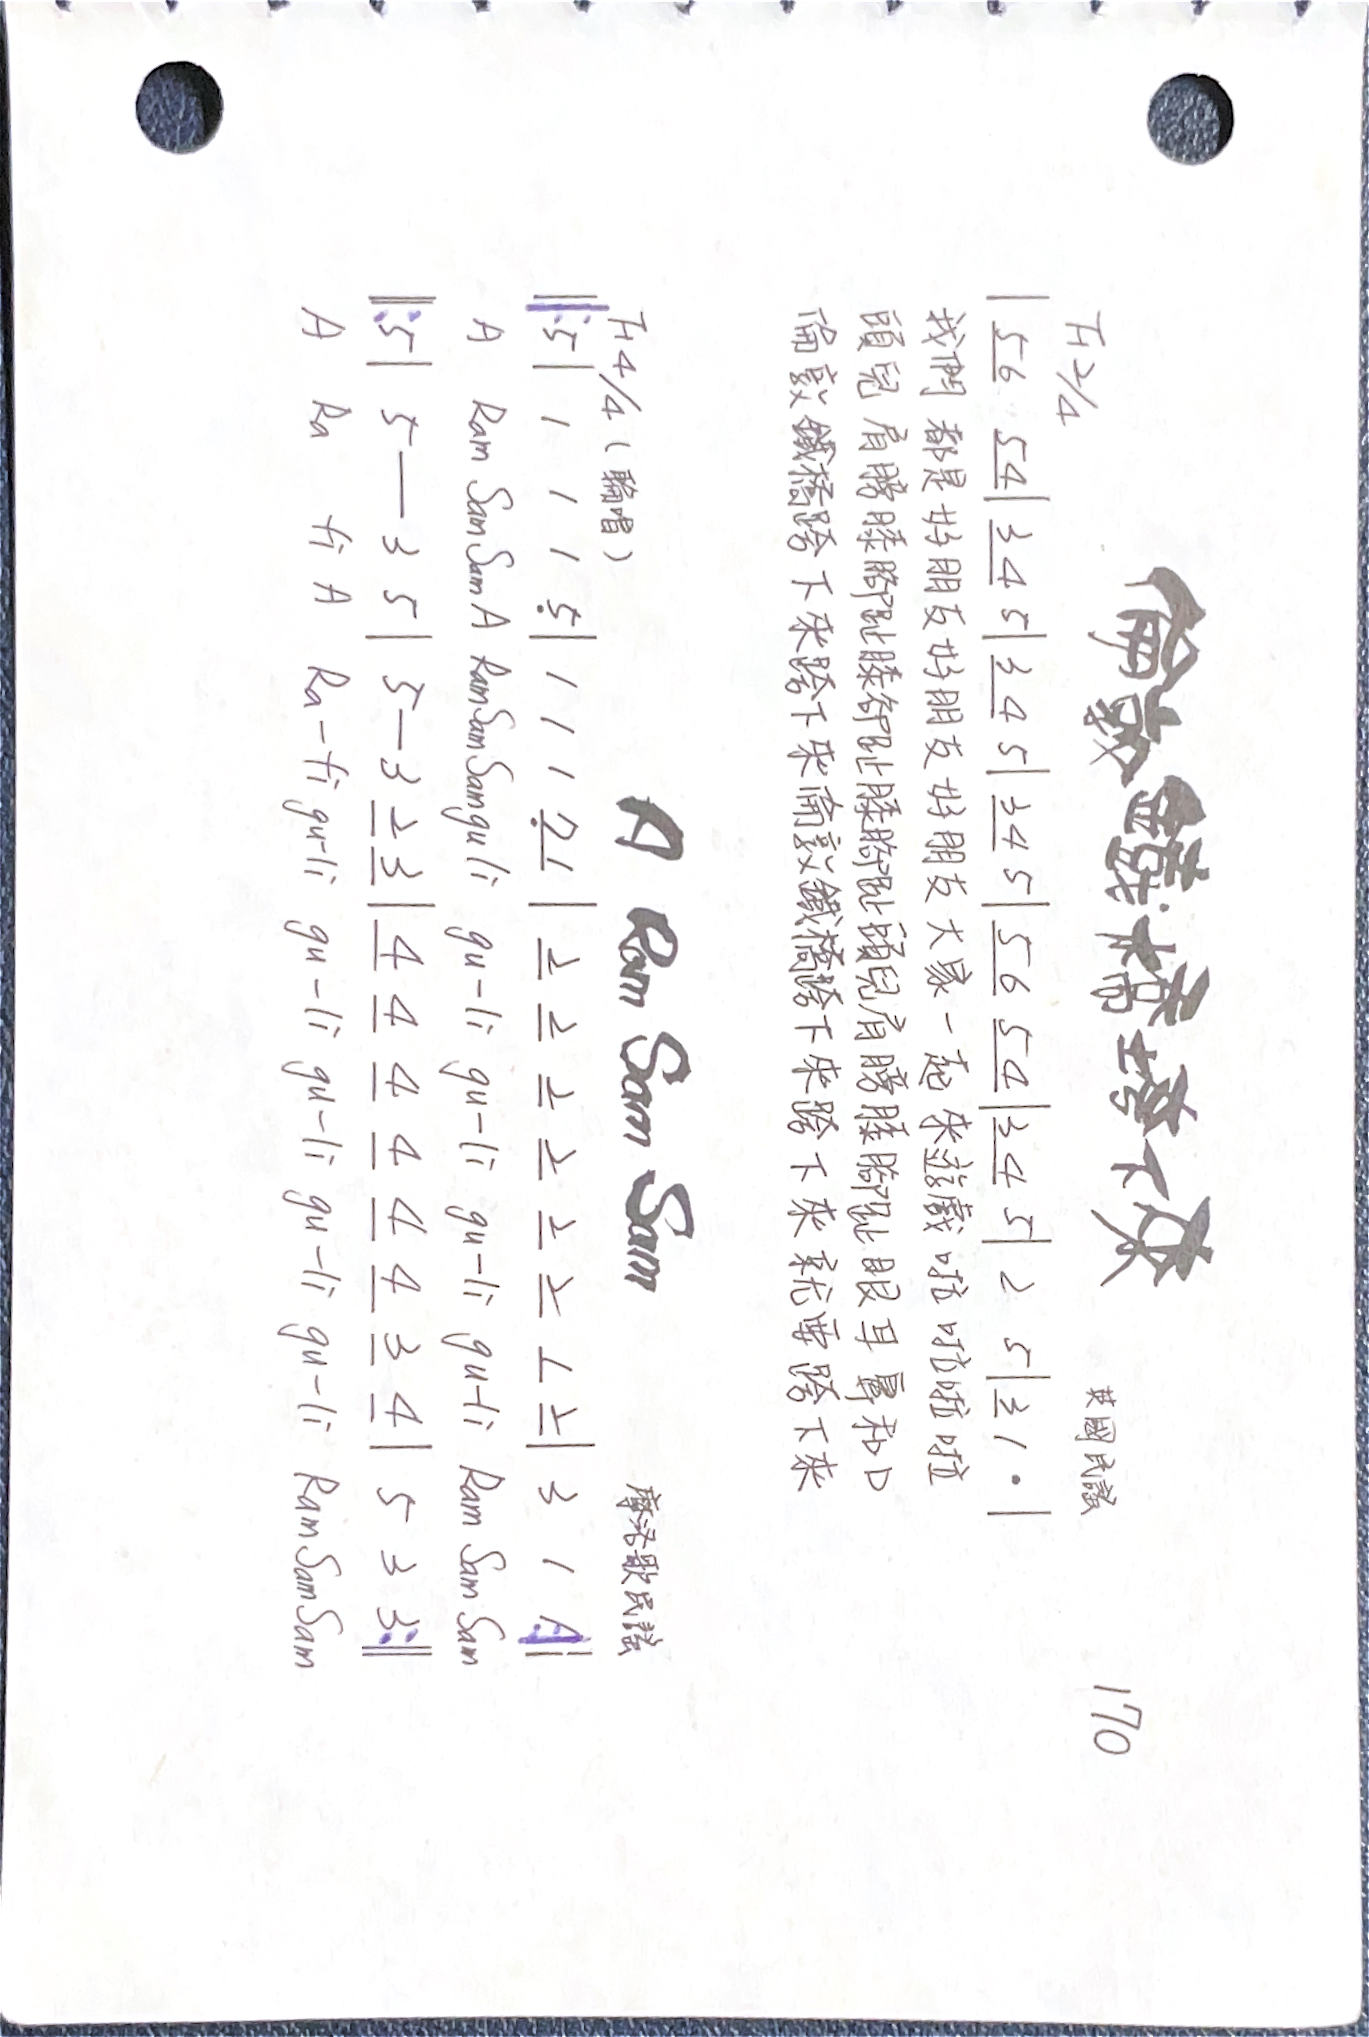 倫敦鐵橋垮下來
170
英國民謠
F 2/4
| 56 54 | 34 5 | 34 5 | 34 5 | 56 54 | 34 5 | 2 5 | 3 1 · |
我們 都是好朋友好朋友好朋友大家一起來遊戲啦啦啦啦
頭兒肩膀膝腳趾膝腳趾膝腳趾頭兒肩膀膝腳趾眼耳鼻和口
倫敦鐵橋跨下來跨下來倫敦鐵橋跨下來跨下來就要跨下來
A Ram Sam Sam
摩洛歌民謠
F 4/4 (輪唱)
‖: 5 | 1 1 1 5̣ | 1 1 1 7̣1 | 2 2 2 2 2 2 1 2 | 3 1 :‖
A Ram Sam Sam A Ram Sam Sam gu li gu-li gu-li gu-li gu-li Ram Sam Sam
‖: 5 | 5 — 3 5 | 5 — 3 2 3 | 4 4 4 4 4 4 3 4 | 5 3 3 :‖
A Ra fi A Ra-fi gu-li gu-li gu-li gu-li gu-li Ram Sam Sam